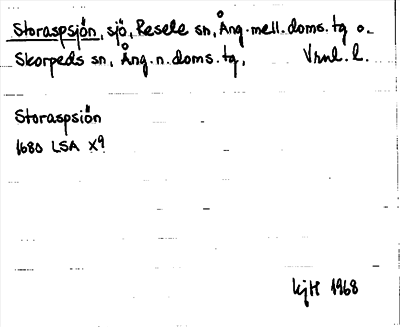 Storaspsjön, sjö, Resele sn, Ång. mell. doms. tg o.
Skorpeds sn, Ång. n. doms. tg, Vrnl. l.
Storaspsiön
1680 LSA X9
kjH 1968